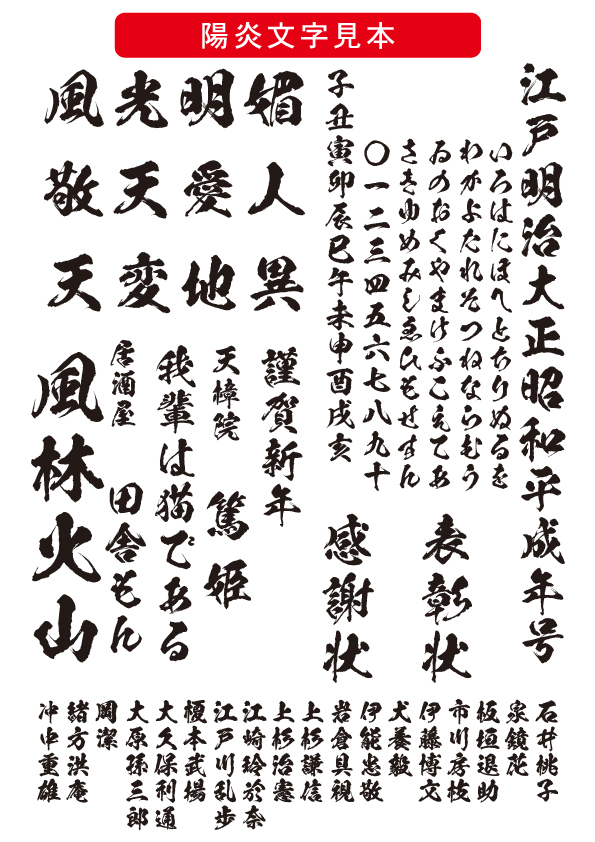 陽炎文字見本
江戸明治大正昭和平成年号
いろはにほへとちりぬるを
わかよたれそつねならむう
ゐのおくやまけふこえてあ
さきゆめみしゑひもせすん
〇一二三四五六七八九十
子丑寅卯辰巳午未申酉戌亥
表彰状
感謝状
媚人異
明愛地
光天変
風敬天
謹賀新年
天樟院 篤姫
我輩は猫である
居酒屋 田舎もん
風林火山
石井桃子
泉鏡花
板垣退助
市川房枝
伊藤博文
犬養毅
伊能忠敬
岩倉具視
上杉謙信
上杉治憲
江崎玲於奈
江戸川乱歩
榎本武揚
大久保利通
大原孫三郎
岡潔
緒方洪庵
沖中重雄